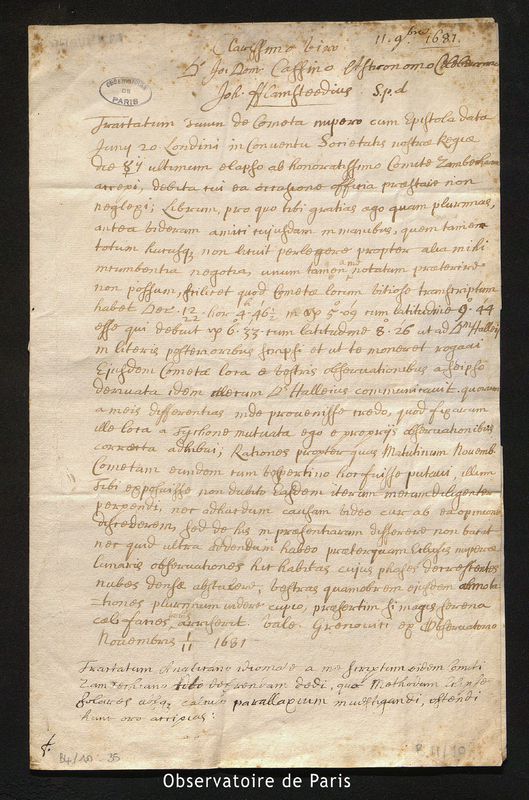 11. 9bre 1681.
Clarissimo viro
Do Jo: Dom: Cassino Astronomo
Joh: fflamsteedius S.p.d
OBSERVATOIRE DE PARIS
Tractatum tuum de Cometa nupero cum Epistola data
Junij 20. Londini in Conventu Societatis nostræ Regiæ
die ultimum elapso ab honoratissimo Comite Zambeccari
accepi, debita tui ea occasione officia præstare non
neglexi; librum, pro quo tibi gratias ago quam plurimas,
antea videram amici cujusdam in manibus, quem tamen
totum hucusq; non licuit perlegere propter alia mihi
incumbentia negotia, unum tamen notatum præterire
non possum, scilicet quod Cometæ locum vitiose transcriptum
habet Dec. 12/22 hor 4. 46 5. 09 cum latitudine 9. 44
esse qui debuit 6. 33 cum latitudine 8. 26 ut ad Dm Halleij
in literis posterioribus scripsi et ut te moneret rogavi
Ejusdem Cometæ loca e vestris observationibus a seipso
derivata idem Ds Halleius communicavit. quorum
a meis differentias inde provenisse credo, quod fixarum
ille loca a Tychone mutuata ego e proprijs observationibus
correcta adhibui; Rationes propter quas Matutinum Novemb
Cometam eundem cum vespertino hoc fuisse putavi, illum
tibi exposuisse non dubito Easdem iterum mecum diligenter
perpendi, nec adhucdum causam video cur ab ea opinione
discederem, sed de his in præsentiarum differere non vacat
nec quid ultra addendum habeo præterquam Eclipsis nuperæ
lunaris observationes hic habitas cujus phases decrescentes
nubes densæ abstulere, vestras quamobrem ejusdem
tiones plurimum videre cupio, præsertim si magis serena
cæli facies arriserit. vale. Grenovici ex Observatorio
Novembris 1/11 1681
Tractatum Anglicano idiomate a me scriptum eidem Comiti
Zambeccario tibi deferendum dedi, quo Methodum Eclipses
solares absq; calculo parallaxium investigandi, ostendi
hunc oro accipias:
Observatoire de Paris